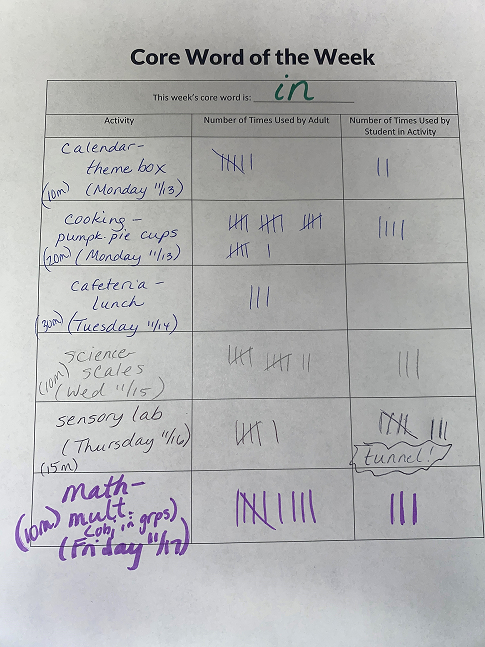 Core Word of the Week
This week's core word is: in
Activity
Number of Times Used by Adult
Number of Times Used by
Student in Activity
Calendar-
theme box
(10m) (Monday 11/13)
Cooking -
pumpk. pie cups
(20m) (Monday 11/13)
cafeteria -
lunch
(30m) (Tuesday 11/14)
science
scales
(10m) (Wed 11/15)
sensory lab
(Thursday 11/16)
(15m)
tunnel!
math-
(10m) mult.
in grps)
(Friday 11/17)